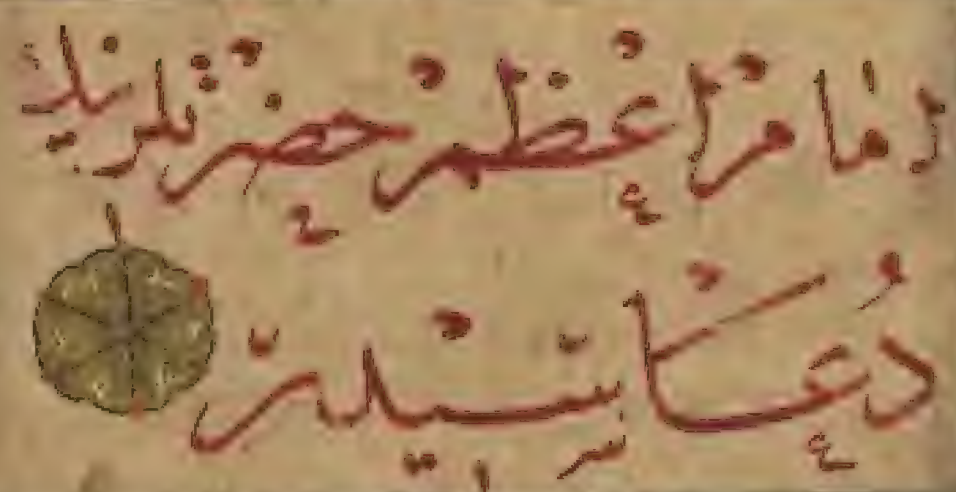 امام اعظم حضرتلرینك
دعاسیدر